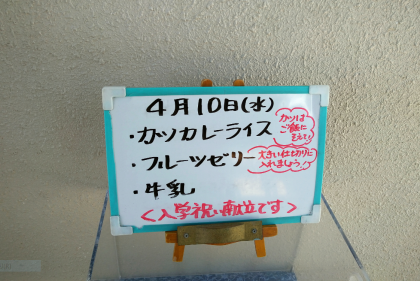 4月10日(水)
・カツカレーライス
カツは
ご飯に
・フルーツゼリー
大きい仕切りに
入れましょう
・牛乳
<入学祝い献立です>